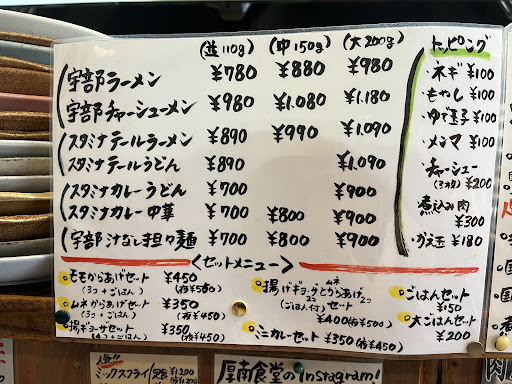 (並110g) (中150g) (大200g)
宇部ラーメン ¥780 ¥880 ¥980
宇部チャーシューメン ¥980 ¥1.080 ¥1.180
スタミナテールラーメン ¥890 ¥990 ¥1.090
スタミナテールうどん ¥890 ¥1.090
スタミナカレーうどん ¥700 ¥900
スタミナカレー中華 ¥700 ¥800 ¥900
宇部汁なし担々麺 ¥700 ¥800 ¥900
トッピング
・ネギ ¥100
・もやし ¥100
・ゆで玉子 ¥100
・メンマ ¥100
・チャーシュー
(3枚) ¥200
・煮込み肉
¥300
・かえ玉 ¥180
<セットメニュー>
・ももからあげセット ¥450
(3コ+ごはん) (夜¥550)
・ムネからあげセット ¥350
(3コ+ごはん) (夜¥450)
・揚げギョーザセット ¥350
(4コ+ごはん) (夜¥450)
・揚げギョーザ2コとムネからあげ2コ
(ごはん付)セット
¥400(夜¥500)
・ミニカレーセット ¥350(夜¥450)
・ごはんセット
¥150
・大ごはんセット
¥200
人気
ミックスフライ
¥1200
厚南食堂のInstagram!